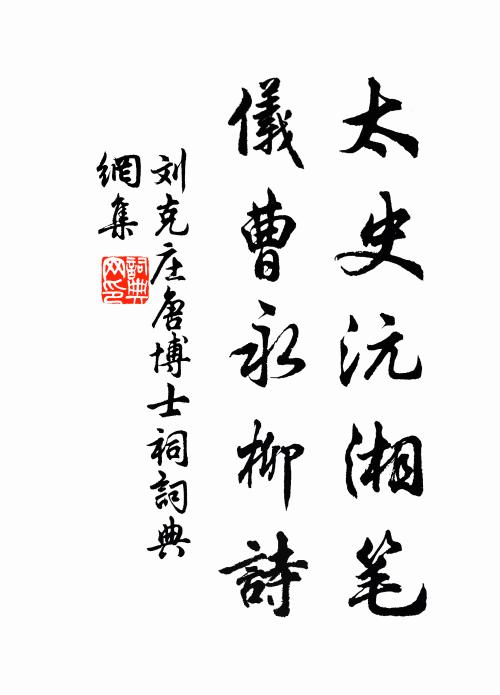 太史沅湘笔
儀曹永柳詩
刘克庄唐博士祠詞典
網集